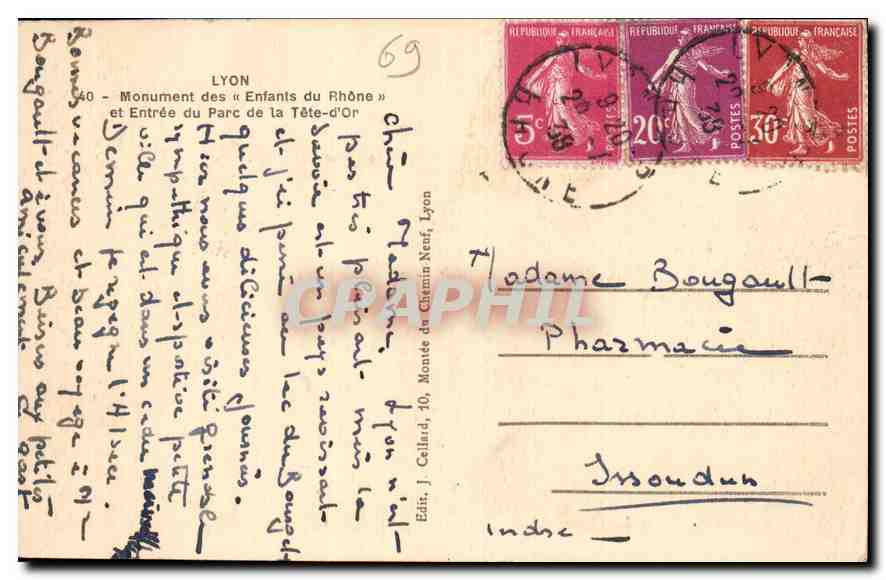 LYON
40 - Monument des « Enfants du Rhône »
et Entrée du Parc de la Tête-d'Or
69
Chère Madame, Lyon n'est
pas très plaisant mais la
Savoie est un pays ravissant
et j'ai passé au lac du Bourget
quelques délicieuses journées.
Hier nous avons visité Grenoble
sympathique et sportive petite
ville qui est dans un cadre
Demain je regagne l'Alsace.
Bonnes vacances et beau voyage à Mr
Bougault et à vous. Baisers aux petites
amicalement
Edit. J. Cellard, 10, Montée du Chemin-Neuf, Lyon
REPUBLIQUE FRANÇAISE
5c
POSTES
REPUBLIQUE FRANÇAISE
20c
POSTES
REPUBLIQUE FRANÇAISE
30c
POSTES
Madame Bougault
Pharmacie
Issoudun
Indre
CPAPHIL